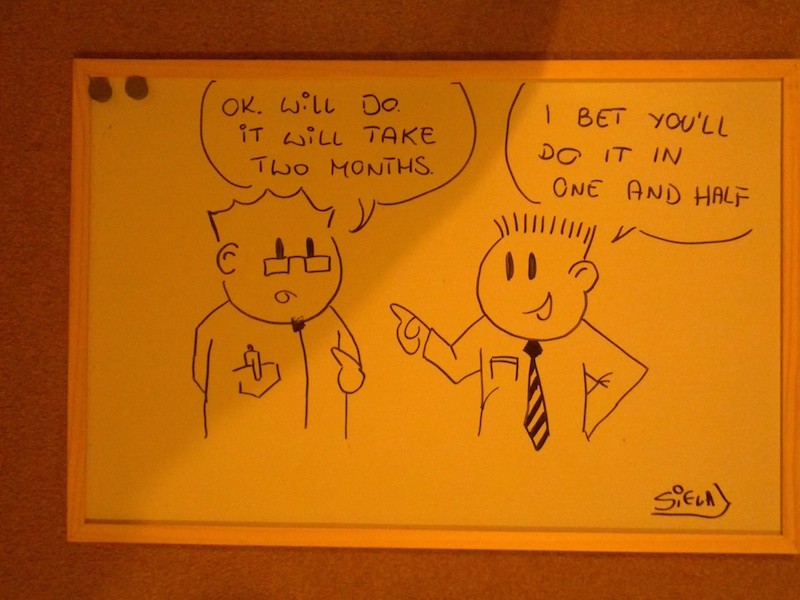 OK. WiLL DO.
iT WiLL TAKE
TWO MONTHS.
I BET YOU'LL
DO IT IN
ONE AND HALF
SiELA